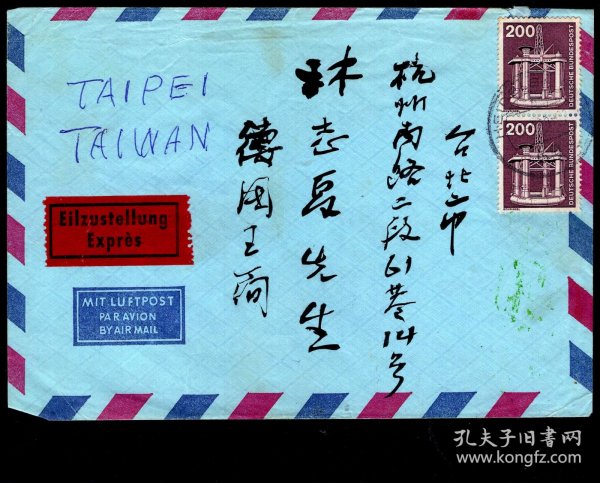 200
DEUTSCHE BUNDESPOST
200
DEUTSCHE BUNDESPOST
TAIPEI
TAIWAN
台北市
杭州南路二段61巷14号
林志豆先生
德国王商
Eilzustellung
Exprès
MIT LUFTPOST
PAR AVION
BY AIR MAIL
孔夫子旧书网
www.kongfz.com